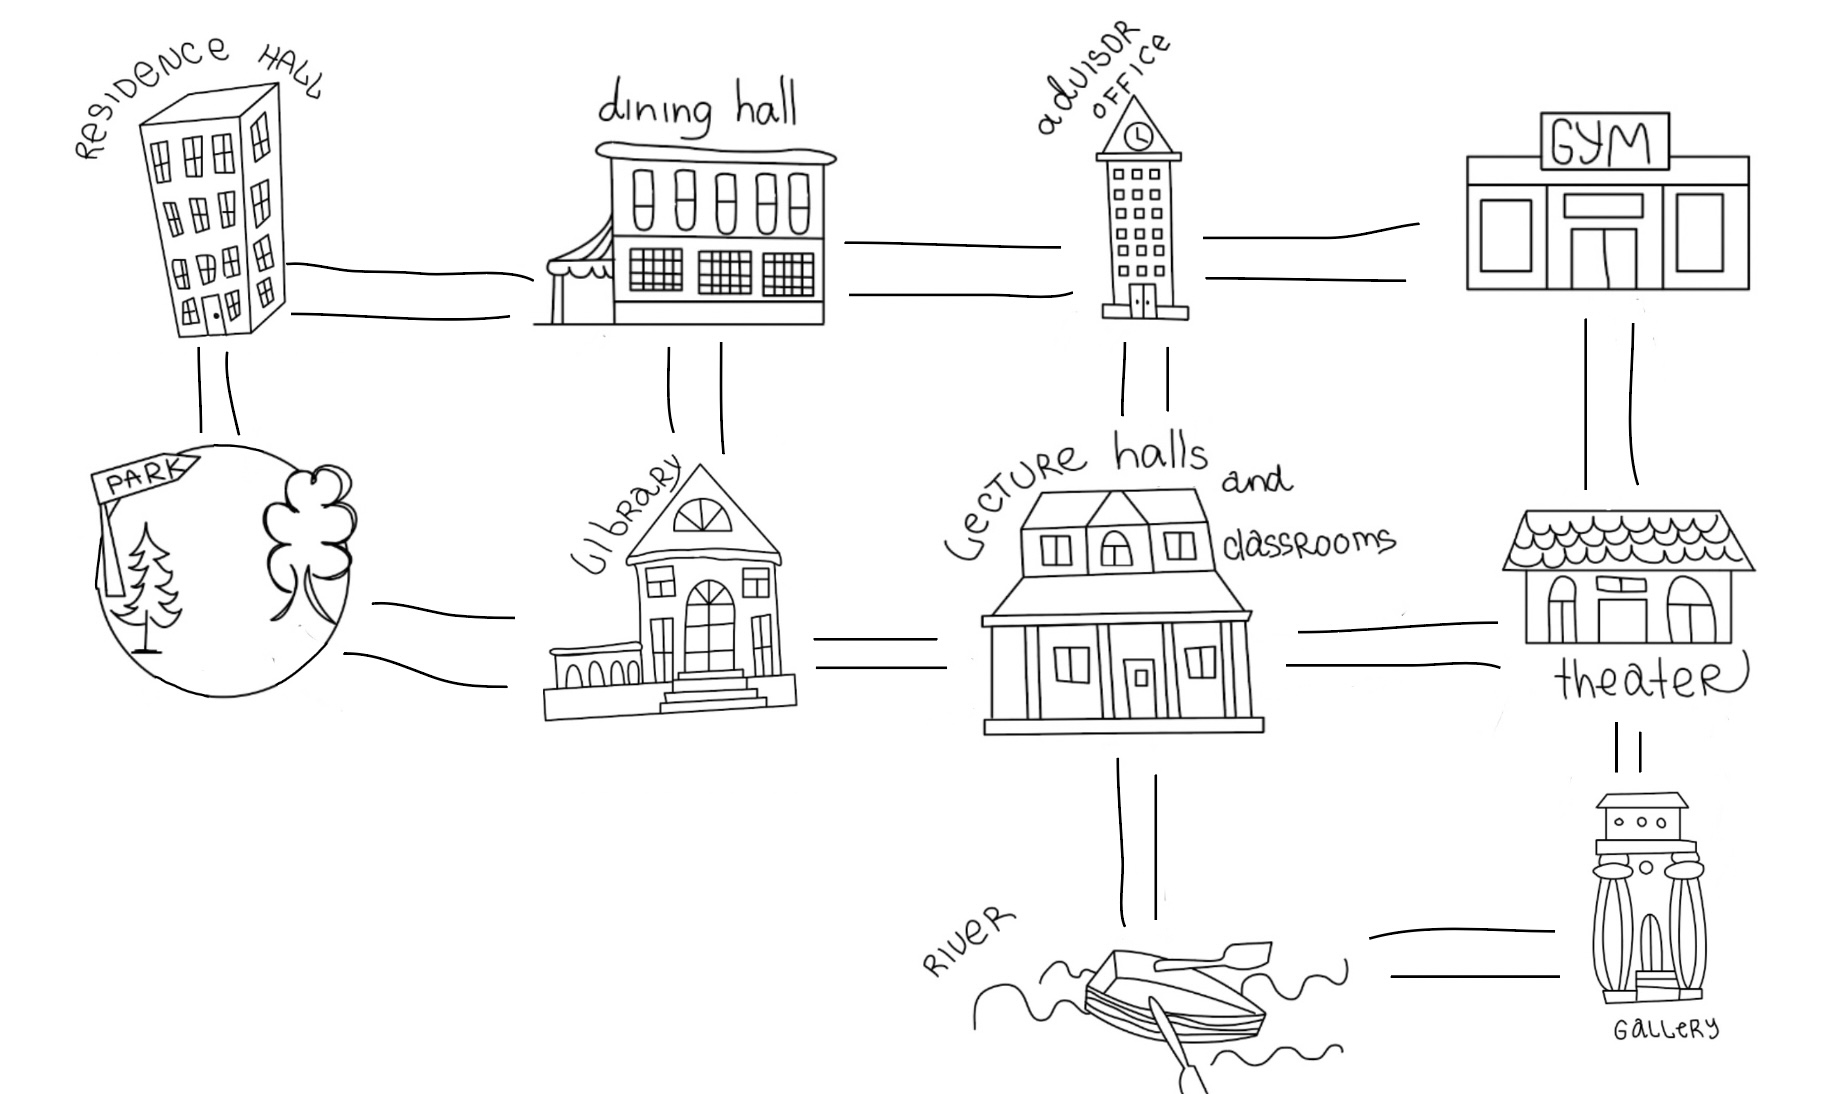 ReSIDeNCe HALL
dining hall
adVISOR
OFFICe
GYM
PARK
LIbRaRy
LeCTURe halls
and
classRooms
theateR
RIVeR
GaLLeRy